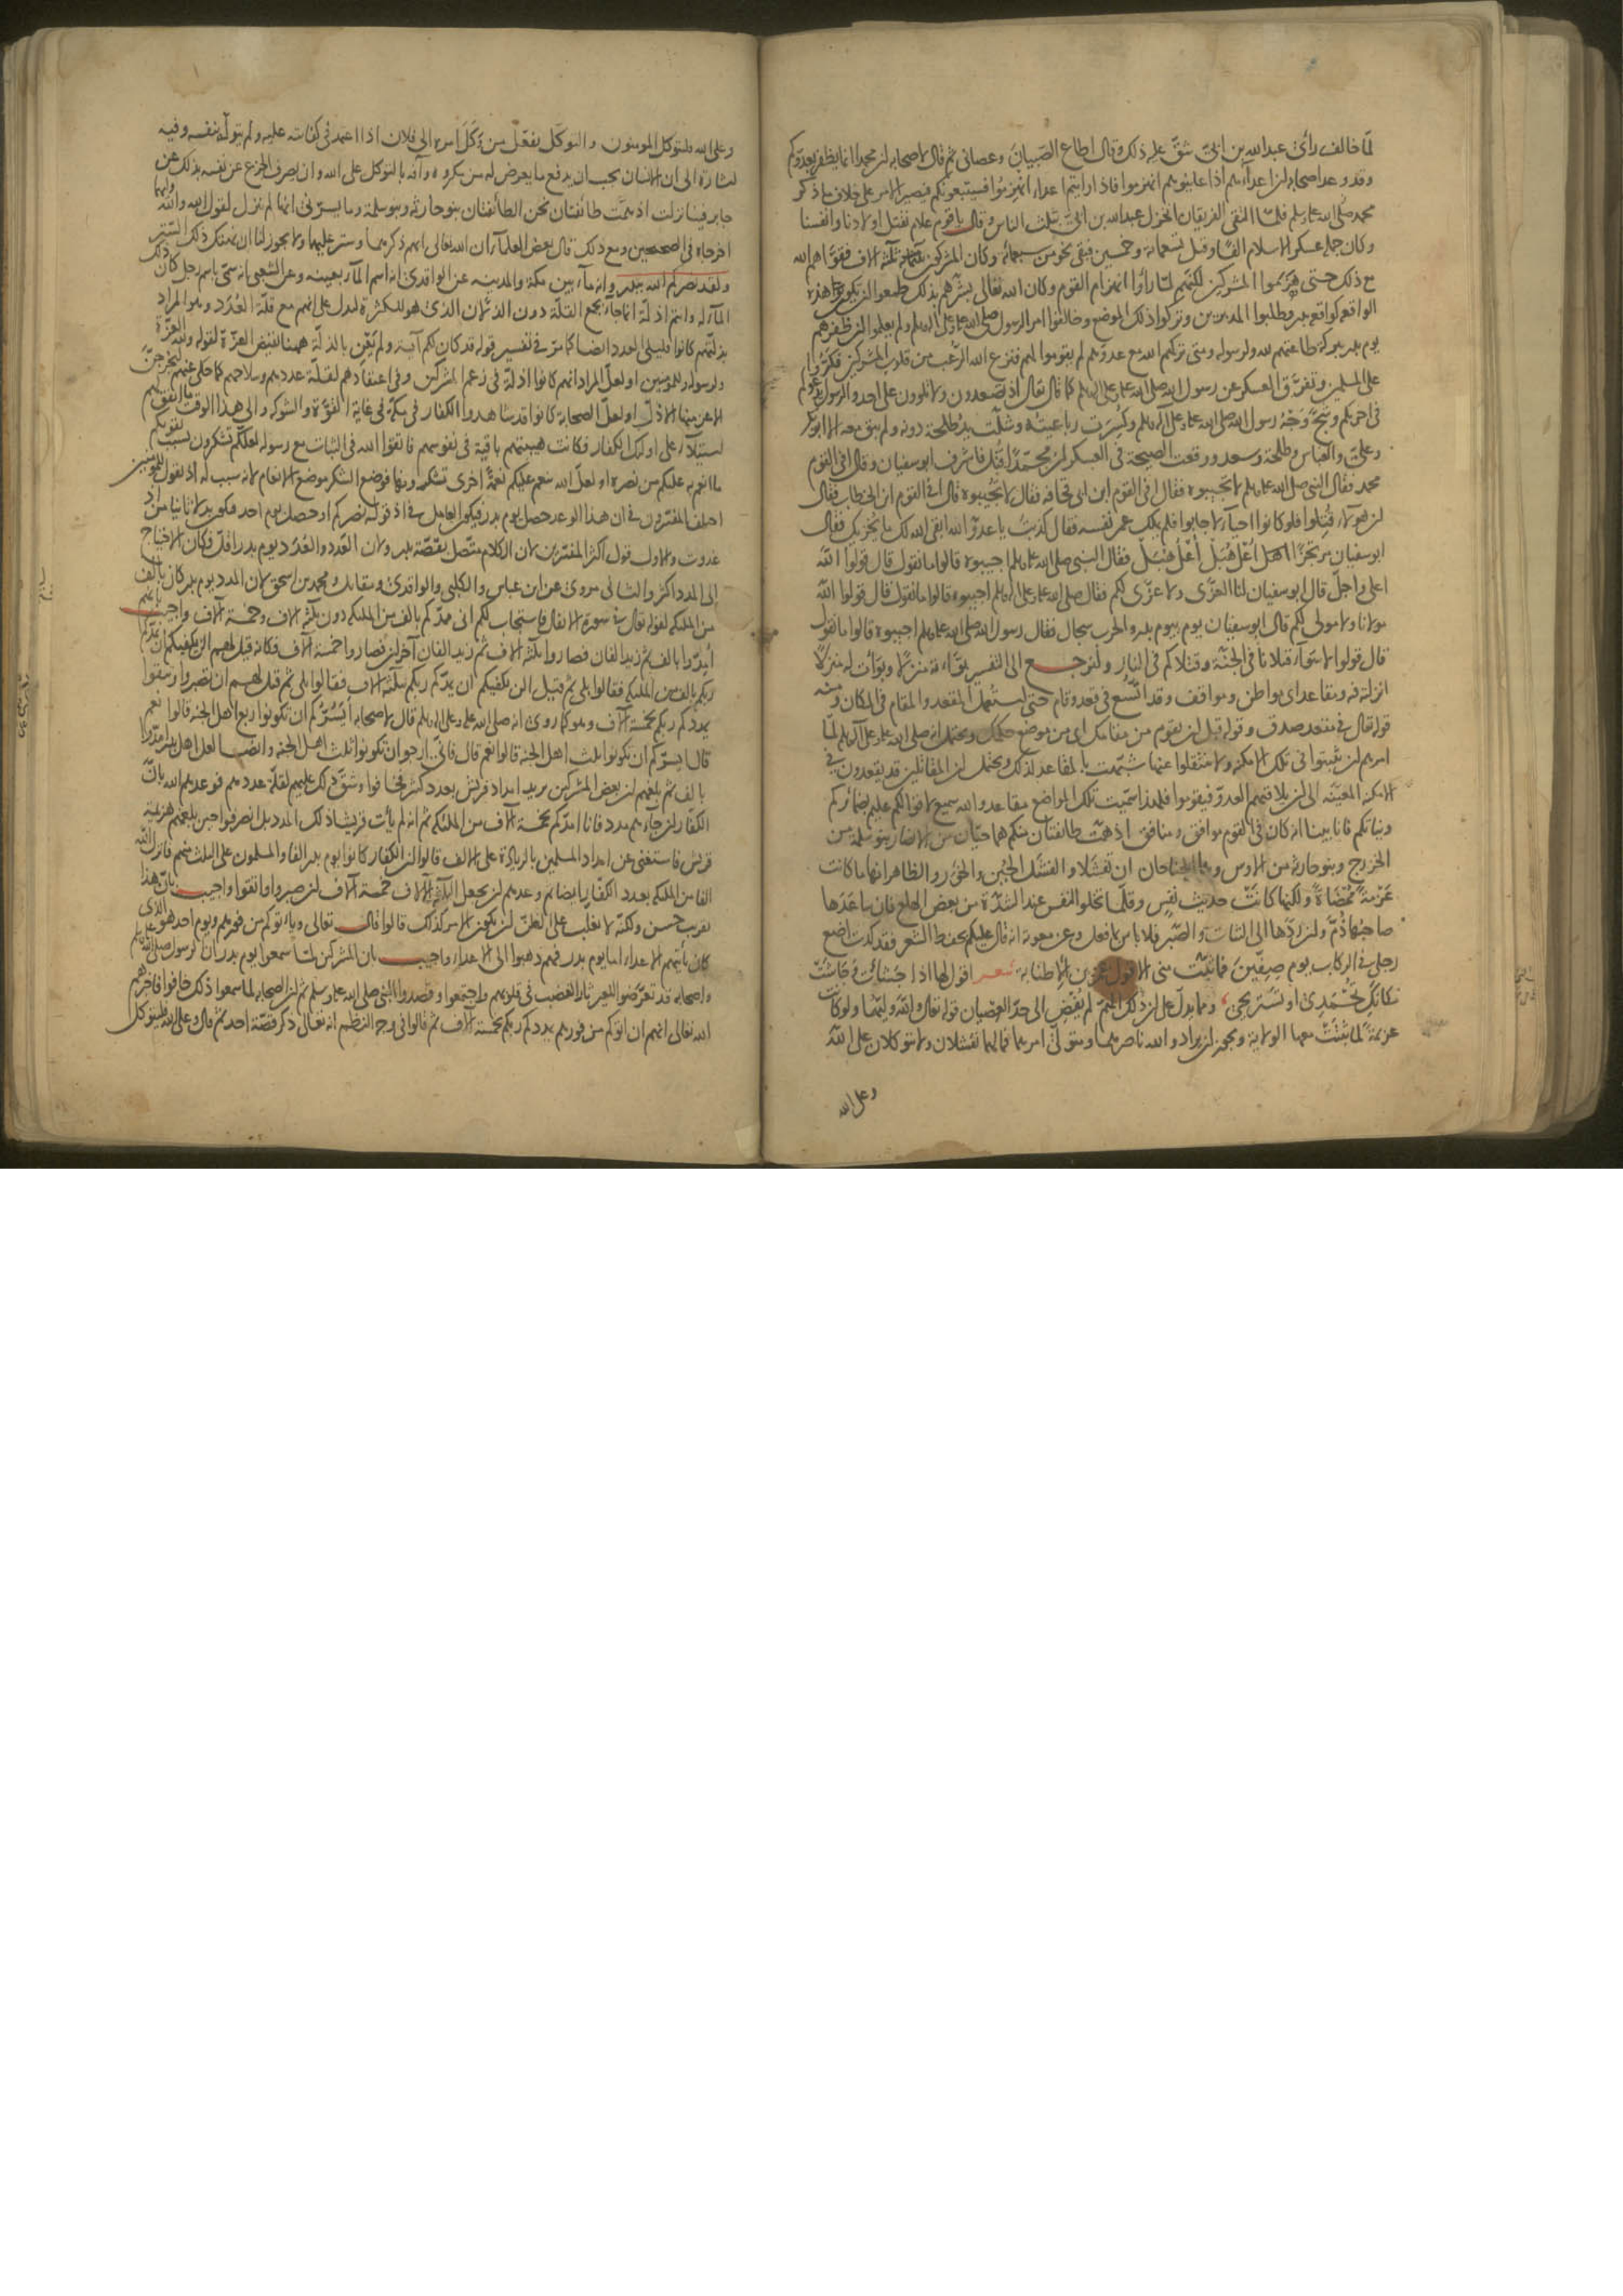 لما خالف رأى عبدالله بن ابىّ شقّ عليه ذلك وقال اطاع الصبيان وعصانى ثم قال لاصحابه ان محمدا انما يظفر بعدوكم
وقد وعد اصحابه ان اعداءهم اذا عاينوهم انهزموا فاذا رايتم اعداءه انهزموا فسيتبعونكم فيصير الامر على خلاف ما ذكر
محمد صلى الله عليه وسلم فلما التقى الفريقان انخزل عبدالله بن ابىّ بثلث الناس وقال يا قوم علام نقتل اولادنا وانفسنا
وكان جملة عسكر الاسلام الفا وقيل تسعمائة وخمسين فبقى نحو من سبعمائة وكان المشركون ثلثة الاف فقوّاهم الله
مع ذلك حتى هزموا المشركين لكنهم لما رأوا انهزام القوم وكان الله تعالى بشّرهم بذلك طمعوا ان يكون هذه
الواقعة كواقعة بدر فطلبوا المدبرين وتركوا ذلك الموضع وخالفوا امر الرسول صلى الله عليه وعلى اله وسلم ولم يعلموا ان ظفرهم
يوم بدر ببركة طاعتهم لله ولرسوله ومتى تركهم الله مع عدوهم لم يقوموا لهم فنزع الله الرعب من قلوب المشركين فكرّوا
على المسلمين وتفرق العسكر عن رسول الله صلى الله عليه وعلى اله وسلم كما قال تعالى اذ تصعدون ولا تلوون على احد والرسول يدعوكم
فى اخريكم وشجّ وجه رسول الله صلى الله عليه وعلى اله وسلم وكسرت رباعيته وشلّت يد طلحة دونه ولم يبق معه الا ابوبكر
وعلىّ والعباس وطلحة وسعد ووقعت الصيحة فى العسكر ان محمدا قتل فاشرف ابوسفيان وقال افى القوم
محمد فقال النبى صلى الله عليه وسلم لا تجيبوه فقال افى القوم ابن ابى قحافة فقال لا تجيبوه قال افى القوم ابن الخطاب فقال
ان هؤلاء قتلوا فلو كانوا احياء لاجابوا فلم يملك عمر نفسه فقال كذبت يا عدو الله ابقى الله لك ما يخزيك فقال
ابوسفيان مرتجزا اعل هبل اعل هبل فقال النبى صلى الله عليه وسلم اجيبوه قالوا ما نقول قال قولوا الله
اعلى واجلّ قال ابوسفيان لنا العزّى ولا عزّى لكم فقال صلى الله عليه وعلى اله وسلم اجيبوه قالوا ما نقول قال قولوا الله
مولانا ولا مولى لكم قال ابوسفيان يوم بيوم بدر والحرب سجال فقال رسول الله صلى الله عليه وسلم اجيبوه قالوا ما نقول
قال قولوا لا سواء قتلانا فى الجنة وقتلاكم فى النار ولنرجع الى التفسير بوّاءته منزلا وبوّأت له منزلا
انزلته فيه ومقاعد اى مواطن ومواقف وقد اتّسع فى قعد وقام حتى استعمل المقعد والمقام فى المكان ومنه
قوله تعالى فى مقعد صدق وقوله قبل ان تقوم من مقامك اى من موضع حكمك ويحتمل انه صلى الله عليه وعلى اله وسلم لما
امرهم ان يثبتوا فى تلك الامكنة ولا ينتقلوا عنها شبّهت بالمقاعد لذلك ويحتمل ان المقاتلين قد يقعدون فى
الامكنة المعيّنة الى ان يلاقيهم العدو فيقوموا فلهذا سمّيت تلك المواضع مقاعد والله سميع لاقوالكم عليم بضمائركم
ونياتكم فانا بينا انه كان فى القوم موافق ومنافق اذ همّت طائفتان منكم هما حيّان من الانصار بنو سلمة من
الخزرج وبنو حارثة من الاوس وهما الجناحان ان تفشلا والفشل الجبن والخور والظاهر انها ما كانت
عزمة ممضاة ولكنها كانت حديث نفس وقلّما تخلو النفس عند الشدّة من بعض الهلع فان ساعدها
صاحبها ذمّ وان ردّها الى الثبات والصبر فلا باس بما فعل وعن معوية انه قال عليكم بحفظ الشعر فقد كدت اضع
رجلى فى الركاب يوم صفّين فما ثبّت منى الا قول عمرو بن الاطنابة شعر اقول لها اذا جشأت وجاشت
مكانك تحمدى او تستريحى ومما يدل على ان ذلك الهمّ لم يفض الى حدّ العصيان قوله تعالى والله وليّهما ولو كانت
عزيمة لما ثبتت معها الولاية ويجوز ان يراد والله ناصرهما ومتولى امرهما فما لهما تفشلان ولا تتوكلان على الله
وعلى الله
وعلى الله فليتوكل المومنون والتوكل تفعّل من وكل امره الى فلان اذا اعتمد فى كفايته عليه ولم يتولّه بنفسه وفيه
اشارة الى ان الانسان يجب ان يدفع ما يعرض له من مكروه وآفة بالتوكل على الله وان يصرف الجزع عن نفسه بذلك عن
جابر فينا نزلت اذ همّت طائفتان نحن الطائفتان بنو حارثة وبنو سلمة وما يسرّنى انها لم تنزل لقول الله والله وليهما
اخرجاه فى الصحيحين ومع ذلك قال بعض العلماء ان الله تعالى ابهم ذكرهما وستر عليهما ولا يجوز لنا ان نهتك ذلك الستر
ولقد نصركم الله ببدر وانه ماء بين مكة والمدينة عن الواقدى انه اسم الماء بعينه وعن الشعبى انه سمّى باسم رجل كان ذلك
الماء له وانتم اذلّة انما جاء بجمع القلّة دون الذلّان الذى هو للكثرة ليدل على انهم مع قلّة العدد وهو المراد
بذلّتهم كانوا قليلى العدد ايضا كما مرّ فى تفسير قوله قد كان لكم آية ولم يعن بالذلّة ههنا نقيض العزّة لقوله ولله العزّة
ولرسوله وللمومنين او لعلّ المراد انهم كانوا اذلّة فى زعم المشركين وفى اعتقادهم لقلّة عددهم وسلاحهم كما حكى عنهم ليخرجنّ
الاعز منها الاذلّ او لعلّ الصحابة كانوا قد شاهدوا الكفار فى مكة فى غاية القوّة والشوكة والى هذا الوقت ما اتفق لهم
استيلاء على اولئك الكفار فكانت هيبتهم باقية فى نفوسهم فاتقوا الله فى الثبات مع رسوله لعلّكم تشكرون بسبب تقويكم
ما انعم به عليكم من نصره او لعلّ الله ينعم عليكم نعمة اخرى تشكرونها فوضع الشكر موضع الانعام لانه سبب له اذ تقول للمومنين
اختلف المفسرون فى ان هذا الوعد حصل يوم بدر فيكون العامل فى اذ قوله نصركم او حصل يوم احد فيكون بدلا ثانيا من اذ
غدوت والاول قول اكثر المفسرين لان الكلام متصل بقصّة بدر ولان العدد والعدد يوم بدر اقل فكان الاحتياج
الى المدد اكثر والثانى مروى عن ابن عباس والكلبى والواقدى ومقاتل ومحمد بن اسحق لان المدد يوم بدر كان بالف
من الملئكة لقوله تعالى فى سورة الانفال فاستجاب لكم انى ممدّكم بالف من الملئكة دون ثلثة الاف وخمسة آلاف واجيب بانهم
امدّوا بالف ثم زيد الفان فصاروا ثلثة الاف ثم زيد الفان آخران فصاروا خمسة آلاف فكانه قيل لهم الن يكفيكم ان يمدّكم
ربكم بالف من الملئكة فقالوا بلى ثم قيل الن يكفيكم ان يمدّكم ربكم بثلثة الاف فقالوا بلى ثم قيل لهم ان تصبروا وتتقوا
يمددكم ربكم بخمسة آلاف وهو كما روى انه صلى الله عليه وعلى اله وسلم قال لاصحابه ايسرّكم ان تكونوا ربع اهل الجنة قالوا نعم
قال ايسرّكم ان تكونوا ثلث اهل الجنة قالوا نعم قال فانى ارجو ان تكونوا ثلث اهل الجنة وايضا لعل اهل بدر امدّوا
بالف ثم بلغهم ان بعض المشركين يريد امداد قريش بعدد كثير فخافوا وشقّ ذلك عليهم لقلّة عددهم فوعدهم الله بانّ
الكفار ان جاءهم مدد فانا امدّكم بخمسة آلاف من الملئكة ثم انه لم يأت قريشا ذلك المدد بل انصرفوا حين بلغهم هزيمة
قريش فاستغنى عن امداد المسلمين بالزيادة على الالف قالوا ان الكفار كانوا يوم بدر الفا والمسلمون على الثلث منهم فانزل الله
الفا من الملئكة بعدد الكفار ايضا ثم وعدهم ان يجعل الثلثة الآلاف خمسة آلاف ان صبروا واتقوا واجيب بانّ هذا
تقريب حسن ولكنّه لا يغلب على الظن ان يكون الامر كذلك قالوا قال تعالى وياتوكم من فورهم ويوم احد هو الذى
كان يأتيهم الاعداء اما يوم بدر فهم ذهبوا الى الاعداء واجيب بان المشركين لما سمعوا يوم بدر ان الرسول صلى الله عليه وسلم
واصحابه قد تعرّضوا للعير ثار الغضب فى قلوبهم واجتمعوا وقصدوا النبى صلى الله عليه وسلم ثم ان الصحابة لما سمعوا ذلك خافوا فاخبرهم
الله تعالى انهم ان اتوكم من فورهم يمددكم ربكم بخمسة آلاف ثم قالوا فى وجه النظم انه تعالى ذكر قصّة احد ثم قال وعلى الله فليتوكل